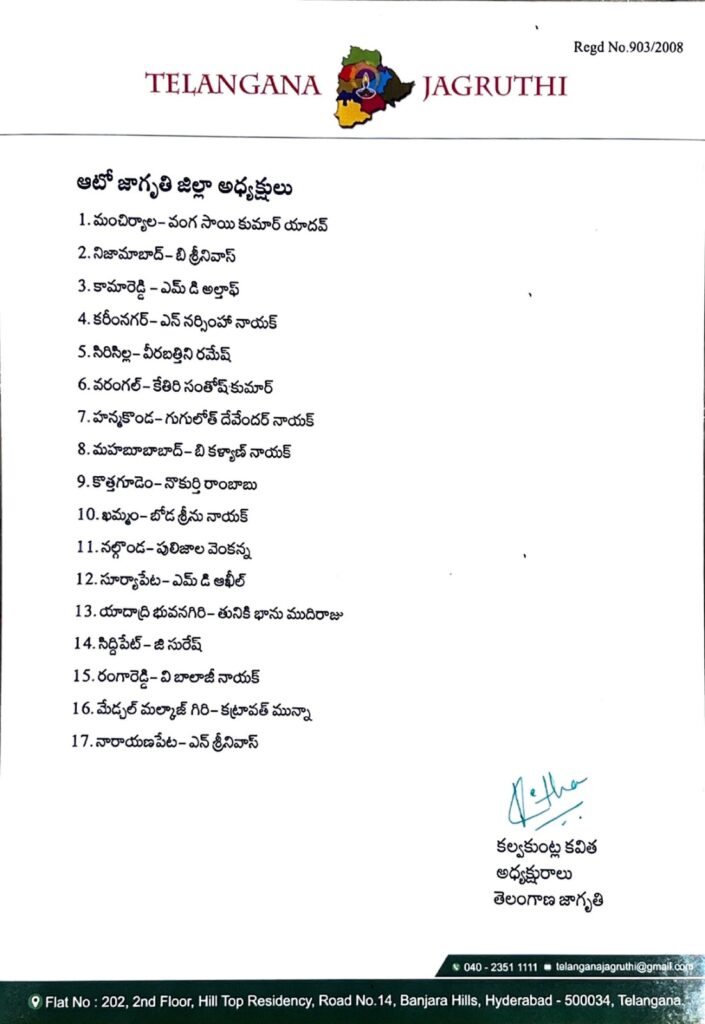 Regd No.903/2008
TELANGANA JAGRUTHI
ఆటో జాగృతి జిల్లా అధ్యక్షులు
1. మంచిర్యాల– వంగ సాయి కుమార్ యాదవ్
2. నిజామాబాద్– బి శ్రీనివాస్
3. కామారెడ్డి – ఎమ్ డి అల్తాఫ్
4. కరీంనగర్– ఎన్ నర్సింహా నాయక్
5. సిరిసిల్ల– వీరబత్తిని రమేష్
6. వరంగల్– కేతిరి సంతోష్ కుమార్
7. హన్మకొండ– గుగులోత్ దేవేందర్ నాయక్
8. మహబూబాబాద్– బి కళ్యాణ్ నాయక్
9. కొత్తగూడెం– నొకుర్తి రాంబాబు
10. ఖమ్మం– బోడ శ్రీను నాయక్
11. నల్గొండ– పులిజాల వెంకన్న
12. సూర్యాపేట– ఎమ్ డి ఆఖీల్
13. యాదాద్రి భువనగిరి– తునికి భాను ముదిరాజు
14. సిద్దిపేట్– జి సురేష్
15. రంగారెడ్డి– వి బాలాజీ నాయక్
16. మేడ్చల్ మల్కాజ్ గిరి– కట్రావత్ మున్నా
17. నారాయణపేట– ఎన్ శ్రీనివాస్
కల్వకుంట్ల కవిత
అధ్యక్షురాలు
తెలంగాణ జాగృతి
040 - 2351 1111 telanganajagruthi@gmail.com
Flat No : 202, 2nd Floor, Hill Top Residency, Road No.14, Banjara Hills, Hyderabad - 500034, Telangana.